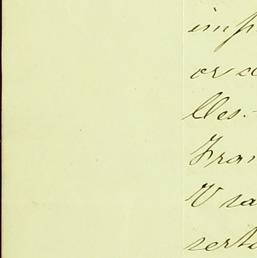 imp
or a
lles.-
Fran
V sa
serti